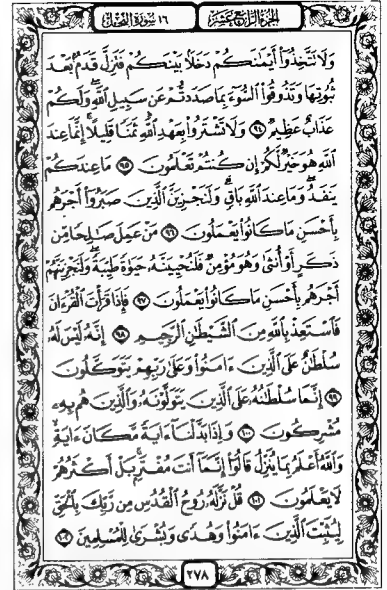 الجزء الرابع عشر ١٦ سورة النحل
وَلَا تَتَّخِذُوٓا۟ أَيْمَـٰنَكُمْ دَخَلًۢا بَيْنَكُمْ فَتَزِلَّ قَدَمٌۢ بَعْدَ
ثُبُوتِهَا وَتَذُوقُوا۟ ٱلسُّوٓءَ بِمَا صَدَدتُّمْ عَن سَبِيلِ ٱللَّهِ ۖ وَلَكُمْ
عَذَابٌ عَظِيمٌ ٩٤ وَلَا تَشْتَرُوا۟ بِعَهْدِ ٱللَّهِ ثَمَنًا قَلِيلًا ۚ إِنَّمَا عِندَ
ٱللَّهِ هُوَ خَيْرٌ لَّكُمْ إِن كُنتُمْ تَعْلَمُونَ ٩٥ مَا عِندَكُمْ
يَنفَدُ ۖ وَمَا عِندَ ٱللَّهِ بَاقٍ ۗ وَلَنَجْزِيَنَّ ٱلَّذِينَ صَبَرُوٓا۟ أَجْرَهُم
بِأَحْسَنِ مَا كَانُوا۟ يَعْمَلُونَ ٩٦ مَنْ عَمِلَ صَـٰلِحًا مِّن
ذَكَرٍ أَوْ أُنثَىٰ وَهُوَ مُؤْمِنٌ فَلَنُحْيِيَنَّهُۥ حَيَوٰةً طَيِّبَةً ۖ وَلَنَجْزِيَنَّهُمْ
أَجْرَهُم بِأَحْسَنِ مَا كَانُوا۟ يَعْمَلُونَ ٩٧ فَإِذَا قَرَأْتَ ٱلْقُرْءَانَ
فَٱسْتَعِذْ بِٱللَّهِ مِنَ ٱلشَّيْطَـٰنِ ٱلرَّجِيمِ ٩٨ إِنَّهُۥ لَيْسَ لَهُۥ
سُلْطَـٰنٌ عَلَى ٱلَّذِينَ ءَامَنُوا۟ وَعَلَىٰ رَبِّهِمْ يَتَوَكَّلُونَ
٩٩ إِنَّمَا سُلْطَـٰنُهُۥ عَلَى ٱلَّذِينَ يَتَوَلَّوْنَهُۥ وَٱلَّذِينَ هُم بِهِۦ
مُشْرِكُونَ ١٠٠ وَإِذَا بَدَّلْنَآ ءَايَةً مَّكَانَ ءَايَةٍ ۙ
وَٱللَّهُ أَعْلَمُ بِمَا يُنَزِّلُ قَالُوٓا۟ إِنَّمَآ أَنتَ مُفْتَرٍۭ ۚ بَلْ أَكْثَرُهُمْ
لَا يَعْلَمُونَ ١٠١ قُلْ نَزَّلَهُۥ رُوحُ ٱلْقُدُسِ مِن رَّبِّكَ بِٱلْحَقِّ
لِيُثَبِّتَ ٱلَّذِينَ ءَامَنُوا۟ وَهُدًى وَبُشْرَىٰ لِلْمُسْلِمِينَ ١٠٢
٢٧٨